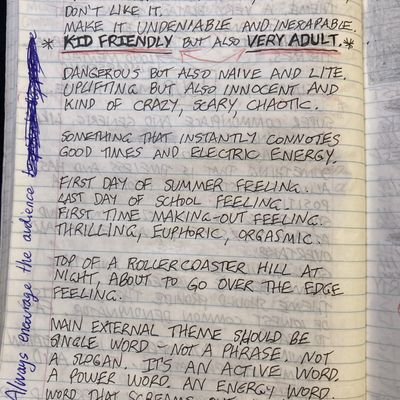 DON'T LIKE IT.
MAKE IT UNDENIABLE AND INEXAPABLE.
* KID FRIENDLY BUT ALSO VERY ADULT. *
DANGEROUS BUT ALSO NAIVE AND LITE.
UPLIFTING BUT ALSO INNOCENT AND
KIND OF CRAZY, SCARY, CHAOTIC.
SOMETHING THAT INSTANTLY CONNOTES
GOOD TIMES AND ELECTRIC ENERGY.
FIRST DAY OF SUMMER FEELING..
LAST DAY OF SCHOOL FEELING.
FIRST TIME MAKING-OUT FEELING.
THRILLING, EUPHORIC, ORGASMIC.
TOP OF A ROLLERCOASTER HILL AT
NIGHT, ABOUT TO GO OVER THE EDGE
FEELING.
MAIN EXTERNAL THEME SHOULD BE
SINGLE WORD - NOT A PHRASE. NOT
A SLOGAN. IT'S AN ACTIVE WORD.
A POWER WORD. AN ENERGY WORD.
WORD THAT SCREAMS OUT
Always encourage the audience